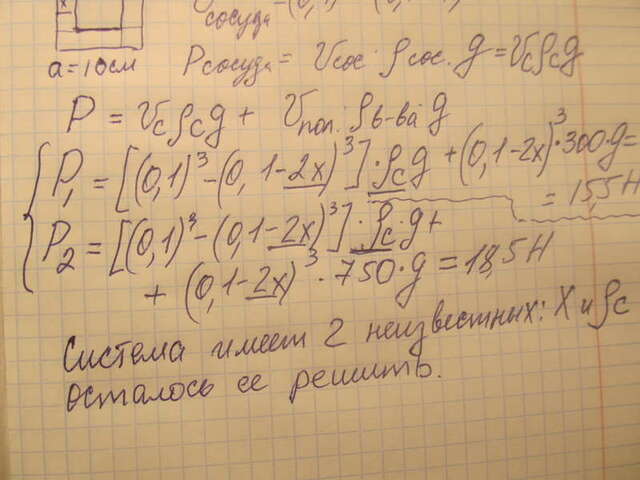 V сосуда = (0,1)
x
a = 10см
Pсосуда = Vсос · ρсос. g = Vcρcg
P = Vcρcg + Vпол. ρв-ва g
P₁ = [(0,1)³ - (0,1-2x)³] · ρcg + (0,1-2x)³ · 300 · g =
= 15,5 Н
P₂ = [(0,1)³ - (0,1-2x)³] · ρc · g +
+ (0,1-2x)³ · 750 · g = 18,5 Н
Система имеет 2 неизвестных: X и ρc
осталось ее решить.